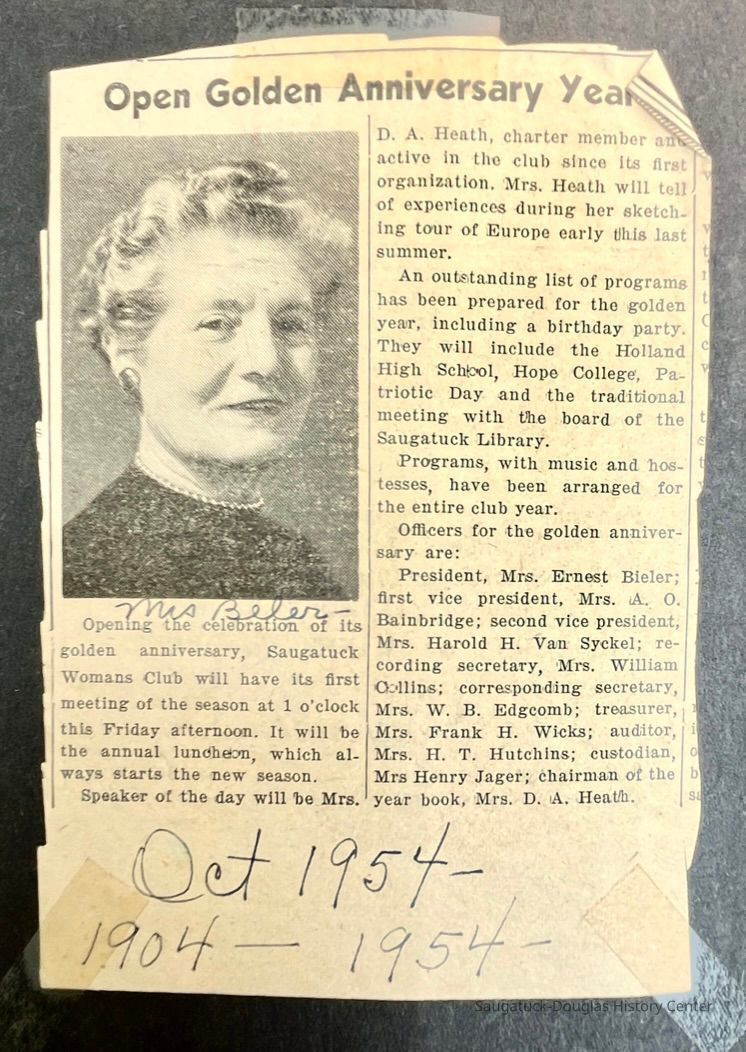 Open Golden Anniversary Year
Mrs Beler-
Opening the celebration of its
golden anniversary, Saugatuck
Womans Club will have its first
meeting of the season at 1 o'clock
this Friday afternoon. It will be
the annual luncheon, which al-
ways starts the new season.
Speaker of the day will be Mrs.
D. A. Heath, charter member and
active in the club since its first
organization. Mrs. Heath will tell
of experiences during her sketch-
ing tour of Europe early this last
summer.
An outstanding list of programs
has been prepared for the golden
year, including a birthday party.
They will include the Holland
High School, Hope College, Pa-
triotic Day and the traditional
meeting with the board of the
Saugatuck Library.
Programs, with music and hos-
tesses, have been arranged for
the entire club year.
Officers for the golden anniver-
sary are:
President, Mrs. Ernest Bieler;
first vice president, Mrs. A. O.
Bainbridge; second vice president,
Mrs. Harold H. Van Syckel; re-
cording secretary, Mrs. William
Collins; corresponding secretary,
Mrs. W. B. Edgcomb; treasurer,
Mrs. Frank H. Wicks; auditor,
Mrs. H. T. Hutchins; custodian,
Mrs Henry Jager; chairman of the
year book, Mrs. D. A. Heath.
Oct 1954-
1904 — 1954-
Saugatuck-Douglas History Center